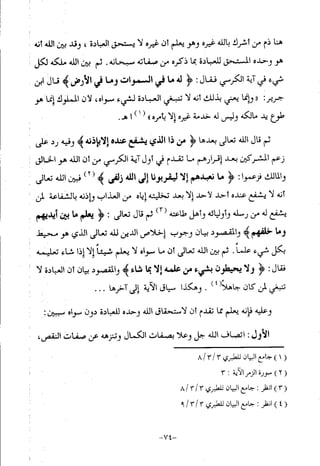 هذا من أشرك بالله وغيره وهو يعلم أن غيره لا تصح العبادة له ، ولقد بين الله أنه
هو وحده المستحق للعبادة لما ذكر من صفات عظمته . ثم بين الله ملكه لكل
شيء في آية الكرسي فقال : ﴿ له ما في السموات وما في الأرض ﴾ قال ابن
جرير : « وأنها ملك له وأنه لا تنبغي العبادة لشيء سواه ، لأن المملوك إنما هو
طوع يد مالكه وليس له خدمة غيره إلا بأمره » (١) ا . هـ .
ثم قال الله تعالى بعدها ﴿ من ذا الذي يشفع عنده إلا بإذنه ﴾ وهو رد على
زعم المشركين بعد إقرارهم بما تقدم في أول آية الكرسي من أن الله هو الخالق
والمالك وزعمهم : ﴿ ما نعبدهم إلا ليقربونا إلى الله زلفى ﴾ (٢) فبين الله تعالى
أنه لا يشفع عنده أحد لأحد إلا بعد تخليته إياه من العذاب وإذنه بالشفاعة له
فيه من رسله وأوليائه وأهل طاعته (٣) ثم قال تعالى : ﴿ يعلم ما بين أيديهم
وما خلفهم ﴾ والمقصود بيان وجوب الإخلاص بالدين لله تعالى الذي هو محيط
بكل شيء علماً . ثم بين الله تعالى أن ما سواه لا يعلم شيئاً إلا إذا شاء تعليمه
فقال : ﴿ ولا يحيطون بشيء من علمه إلا بما شاء ﴾ والمقصود بيان أن العبادة لا
تنبغي لمن كان جاهلاً (٤) . وهكذا سائر الآية إلى آخرها ...
وعليه فإنه يعلم مما تقدم أن استحقاق الله وحده للعبادة دون سواه من وجوه :
الأول : اتصاف الله عز وجل وحده بصفات الكمال وتنزهه عن صفات النقص ،
(١) جامع البيان للطبري ٨/٣/٣
(٢) سورة الزمر الآية : ٣
(٣) انظر : جامع البيان للطبري ٨/٣/٣
(٤) انظر : جامع البيان للطبري ٩/٣/٣
-٧٤-